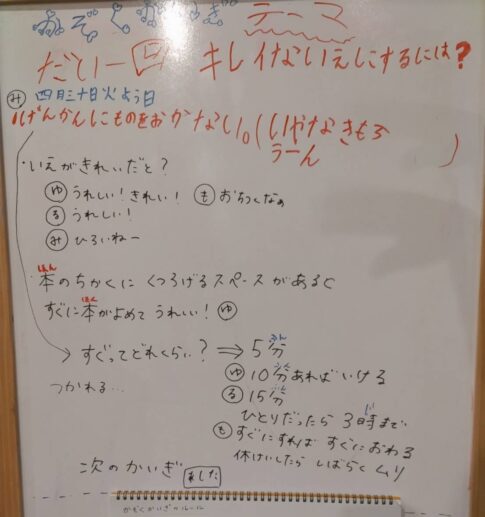 かぞくかいぎ テーマ
だい一回 キレイないえにするには?
み 四月三十日火よう日
げんかんにものをおかない。(いやなきもち
うーん )
・いえがきれいだと?
ゆ うれしい!きれい! も おちつくなぁ
る うれしい!
み ひろいねー
ほん
本のちかくにくつろげるスペースがあると
ほん
すぐに本がよめてうれしい! ゆ
ふん
すぐってどれくらい? ⇒ 5分
ふん
ゆ 10分あればいける
つかれる…
ふん
る 15分
じ
ひとりだったら 3時まで
も すぐにすれば すぐにおわる
休けいしたら しばらくムリ
次のかいぎ あした
かぞくかいぎのルール